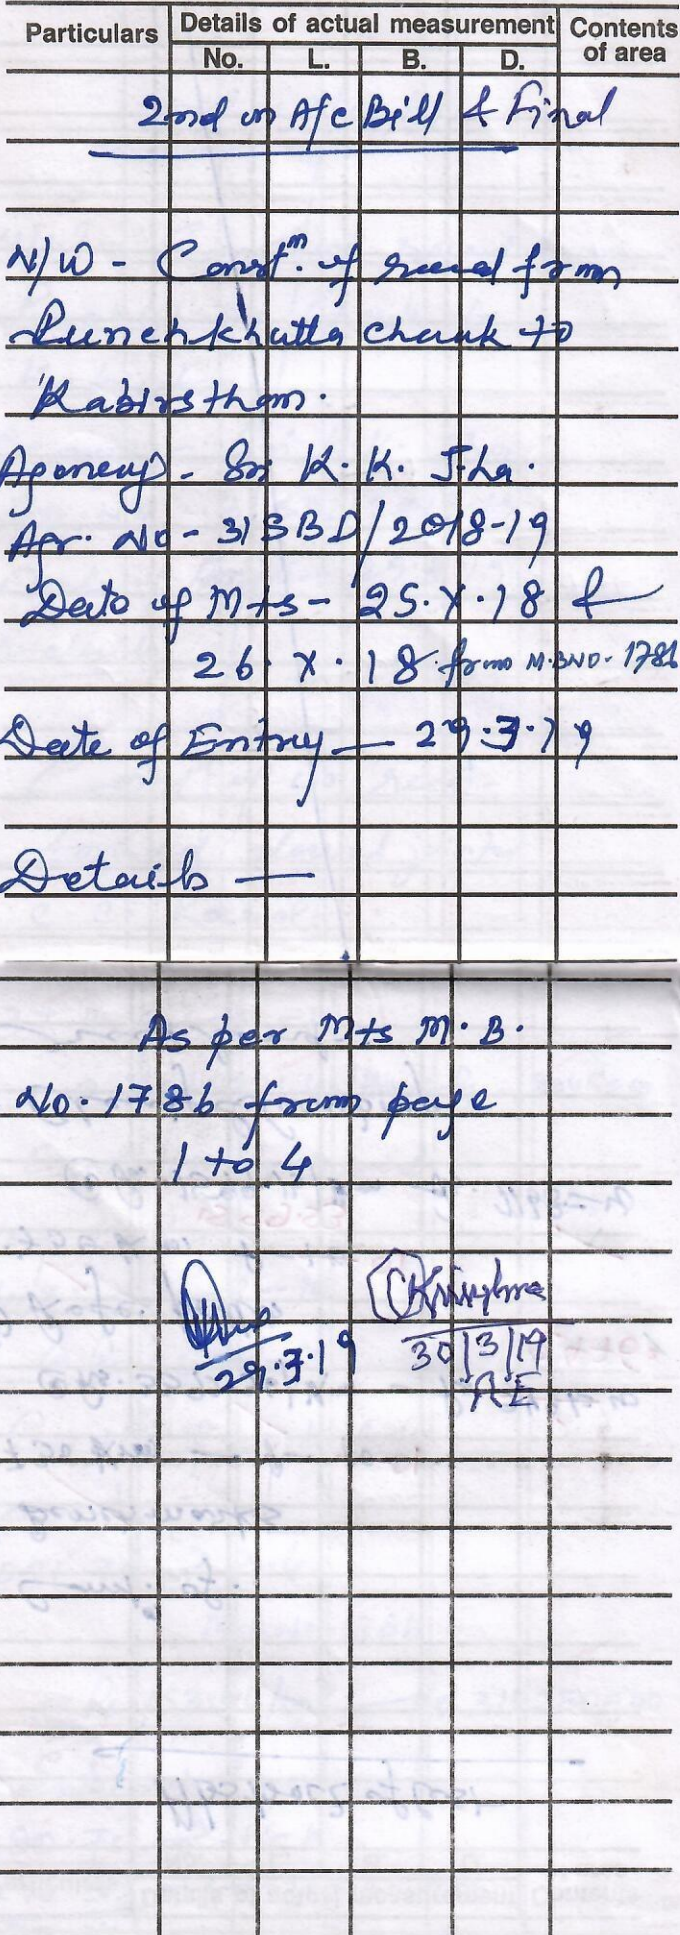 Particulars Details of actual measurement Contents of area
No. L. B. D.
2nd on A/c Bill & Final
N/W - Constn. of road from
Punchkhutta chauk to
Kabirsthan.
Agency - Sri K. K. Jha.
Agr. No - 31 SBD/2018-19
Date of Mts - 25.X.18 &
26.X.18 from M.B NO. 1786
Date of Entry — 29.3.19
Details —
As per Mts M.B.
No. 1786 from page
1 to 4
29.3.19
30/3/19
AE